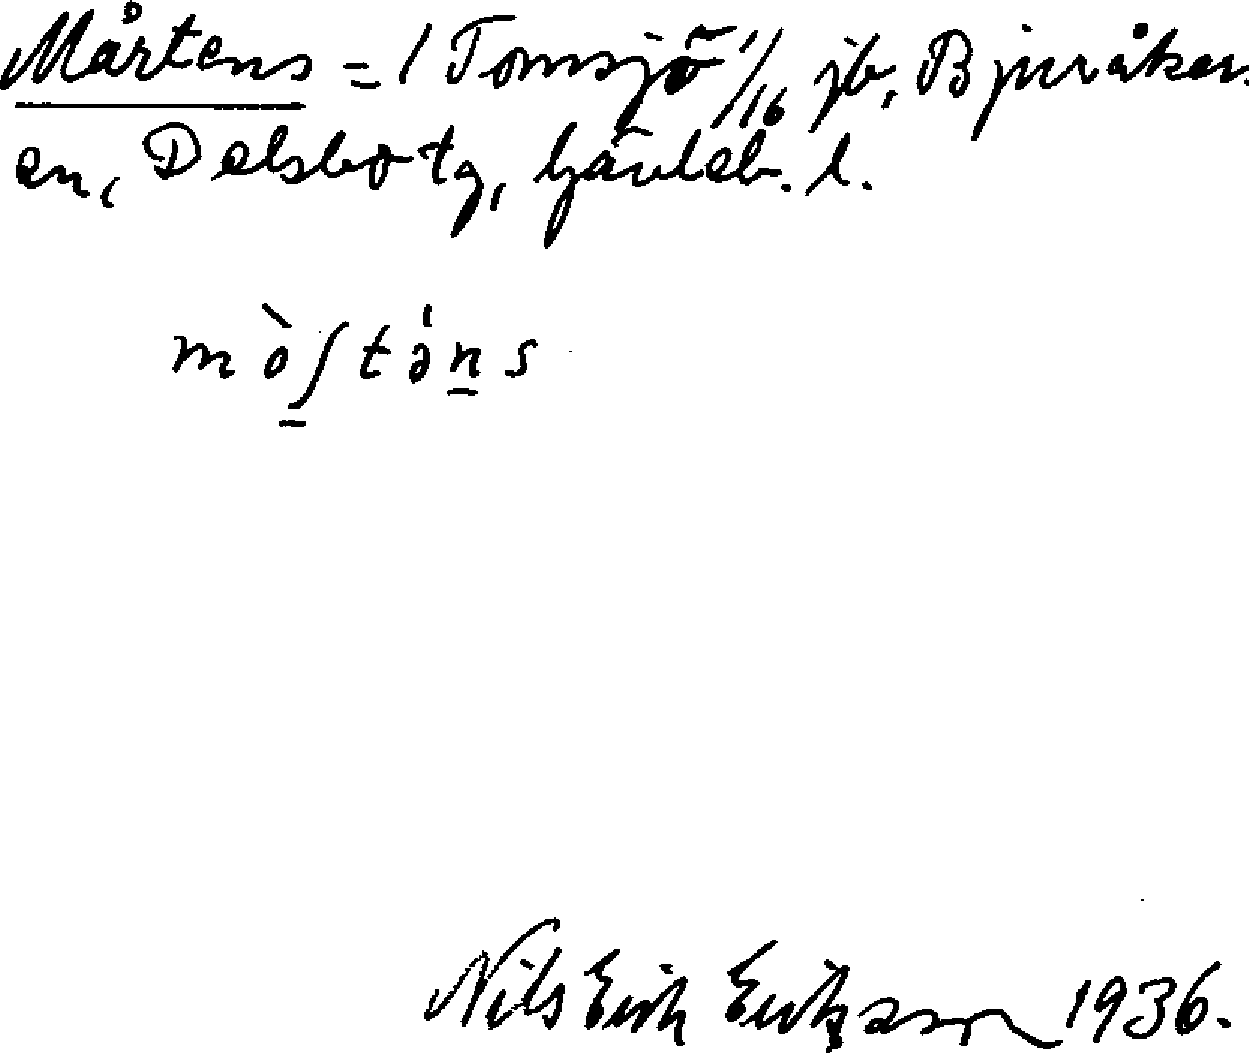 Mårtens = 1 Tomsjö 1/16 jb, Bjuråker
sn, Delsbo tg, Gävleb. l.
mò̱ʃtə̍n̲s
Nils Erik Erikson 1936.